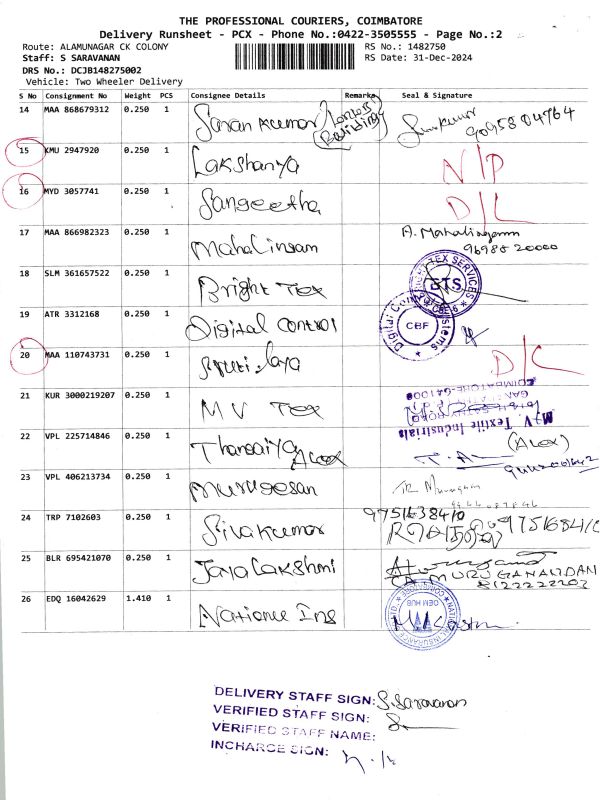 THE PROFESSIONAL COURIERS, COIMBATORE
Delivery Runsheet - PCX - Phone No.:0422-3505555 - Page No.:2
Route: ALAMUNAGAR CK COLONY RS No.: 1482750
Staff: S SARAVANAN RS Date: 31-Dec-2024
DRS No.: DCJB148275002
Vehicle: Two Wheeler Delivery
S No Consignment No Weight PCS Consignee Details Remarks Seal & Signature
14 MAA 868679312 0.250 1 Saran kumar
9095804764
15 KMU 2947920 0.250 1 Lakshanya N/P
16 MYD 3057741 0.250 1 Sangeetha D/L
17 MAA 866982323 0.250 1 Mahalingam A. Mahalingam
96988 20000
18 SLM 361657522 0.250 1 Bright Tex
BTS
19 ATR 3312168 0.250 1 Digital Control
CBF
20 MAA 110743731 0.250 1 D/L
21 KUR 3000219207 0.250 1 M V Tex
M.V. Textile Industrials
22 VPL 225714846 0.250 1 Alex (Alex)
23 VPL 406213734 0.250 1 Murugesan
24 TRP 7102603 0.250 1 Sivakumar
25 BLR 695421070 0.250 1 Jayalakshmi
MURUGANANDAN
26 EDQ 16042629 1.410 1 Nationce Ins
OEM HUB
DELIVERY STAFF SIGN: S. Saravanan
VERIFIED STAFF SIGN:
VERIFIED STAFF NAME:
INCHARGE SIGN: